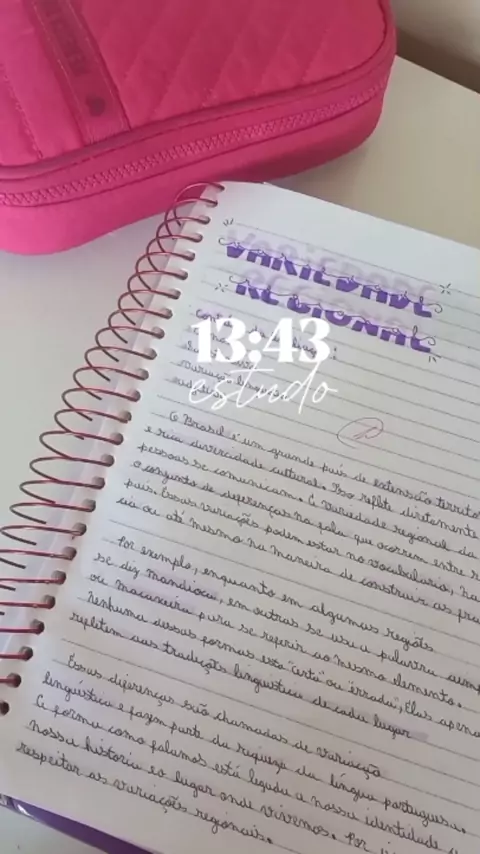 VARIEDADE
REGIONAL
13:43
estudo
O Brasil é um grande país de extensão
e rica diversidade cultural. Isso reflete diretamente
pessoas se comunicam. A variedade regional da
o conjunto de diferenças na fala que ocorrem entre
país. Essas variações podem estar no vocabulário, na
ou até mesmo na maneira de construir as
Por exemplo, enquanto em algumas regiões
se diz mandioca, em outras se usa a palavra
ou macaxeira para se referir ao mesmo elemento.
nenhuma dessas formas está "certa" ou "errada", Elas
refletem as tradições linguísticas de cada lugar
Essas diferenças são chamadas de variação
linguística e fazem parte da riqueza da língua portuguesa.
A forma como falamos está ligada a nossa identidade a
nossa história e o lugar onde vivemos. Por
respeitar as variações regionais.